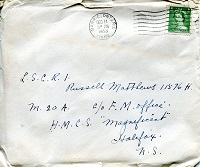 L.S.C.R.1
Russell Matthews 11876 H.
M. 20 A c/o F.M. office.
H.M.C.S. "Magnificent"
Halifax
N.S.